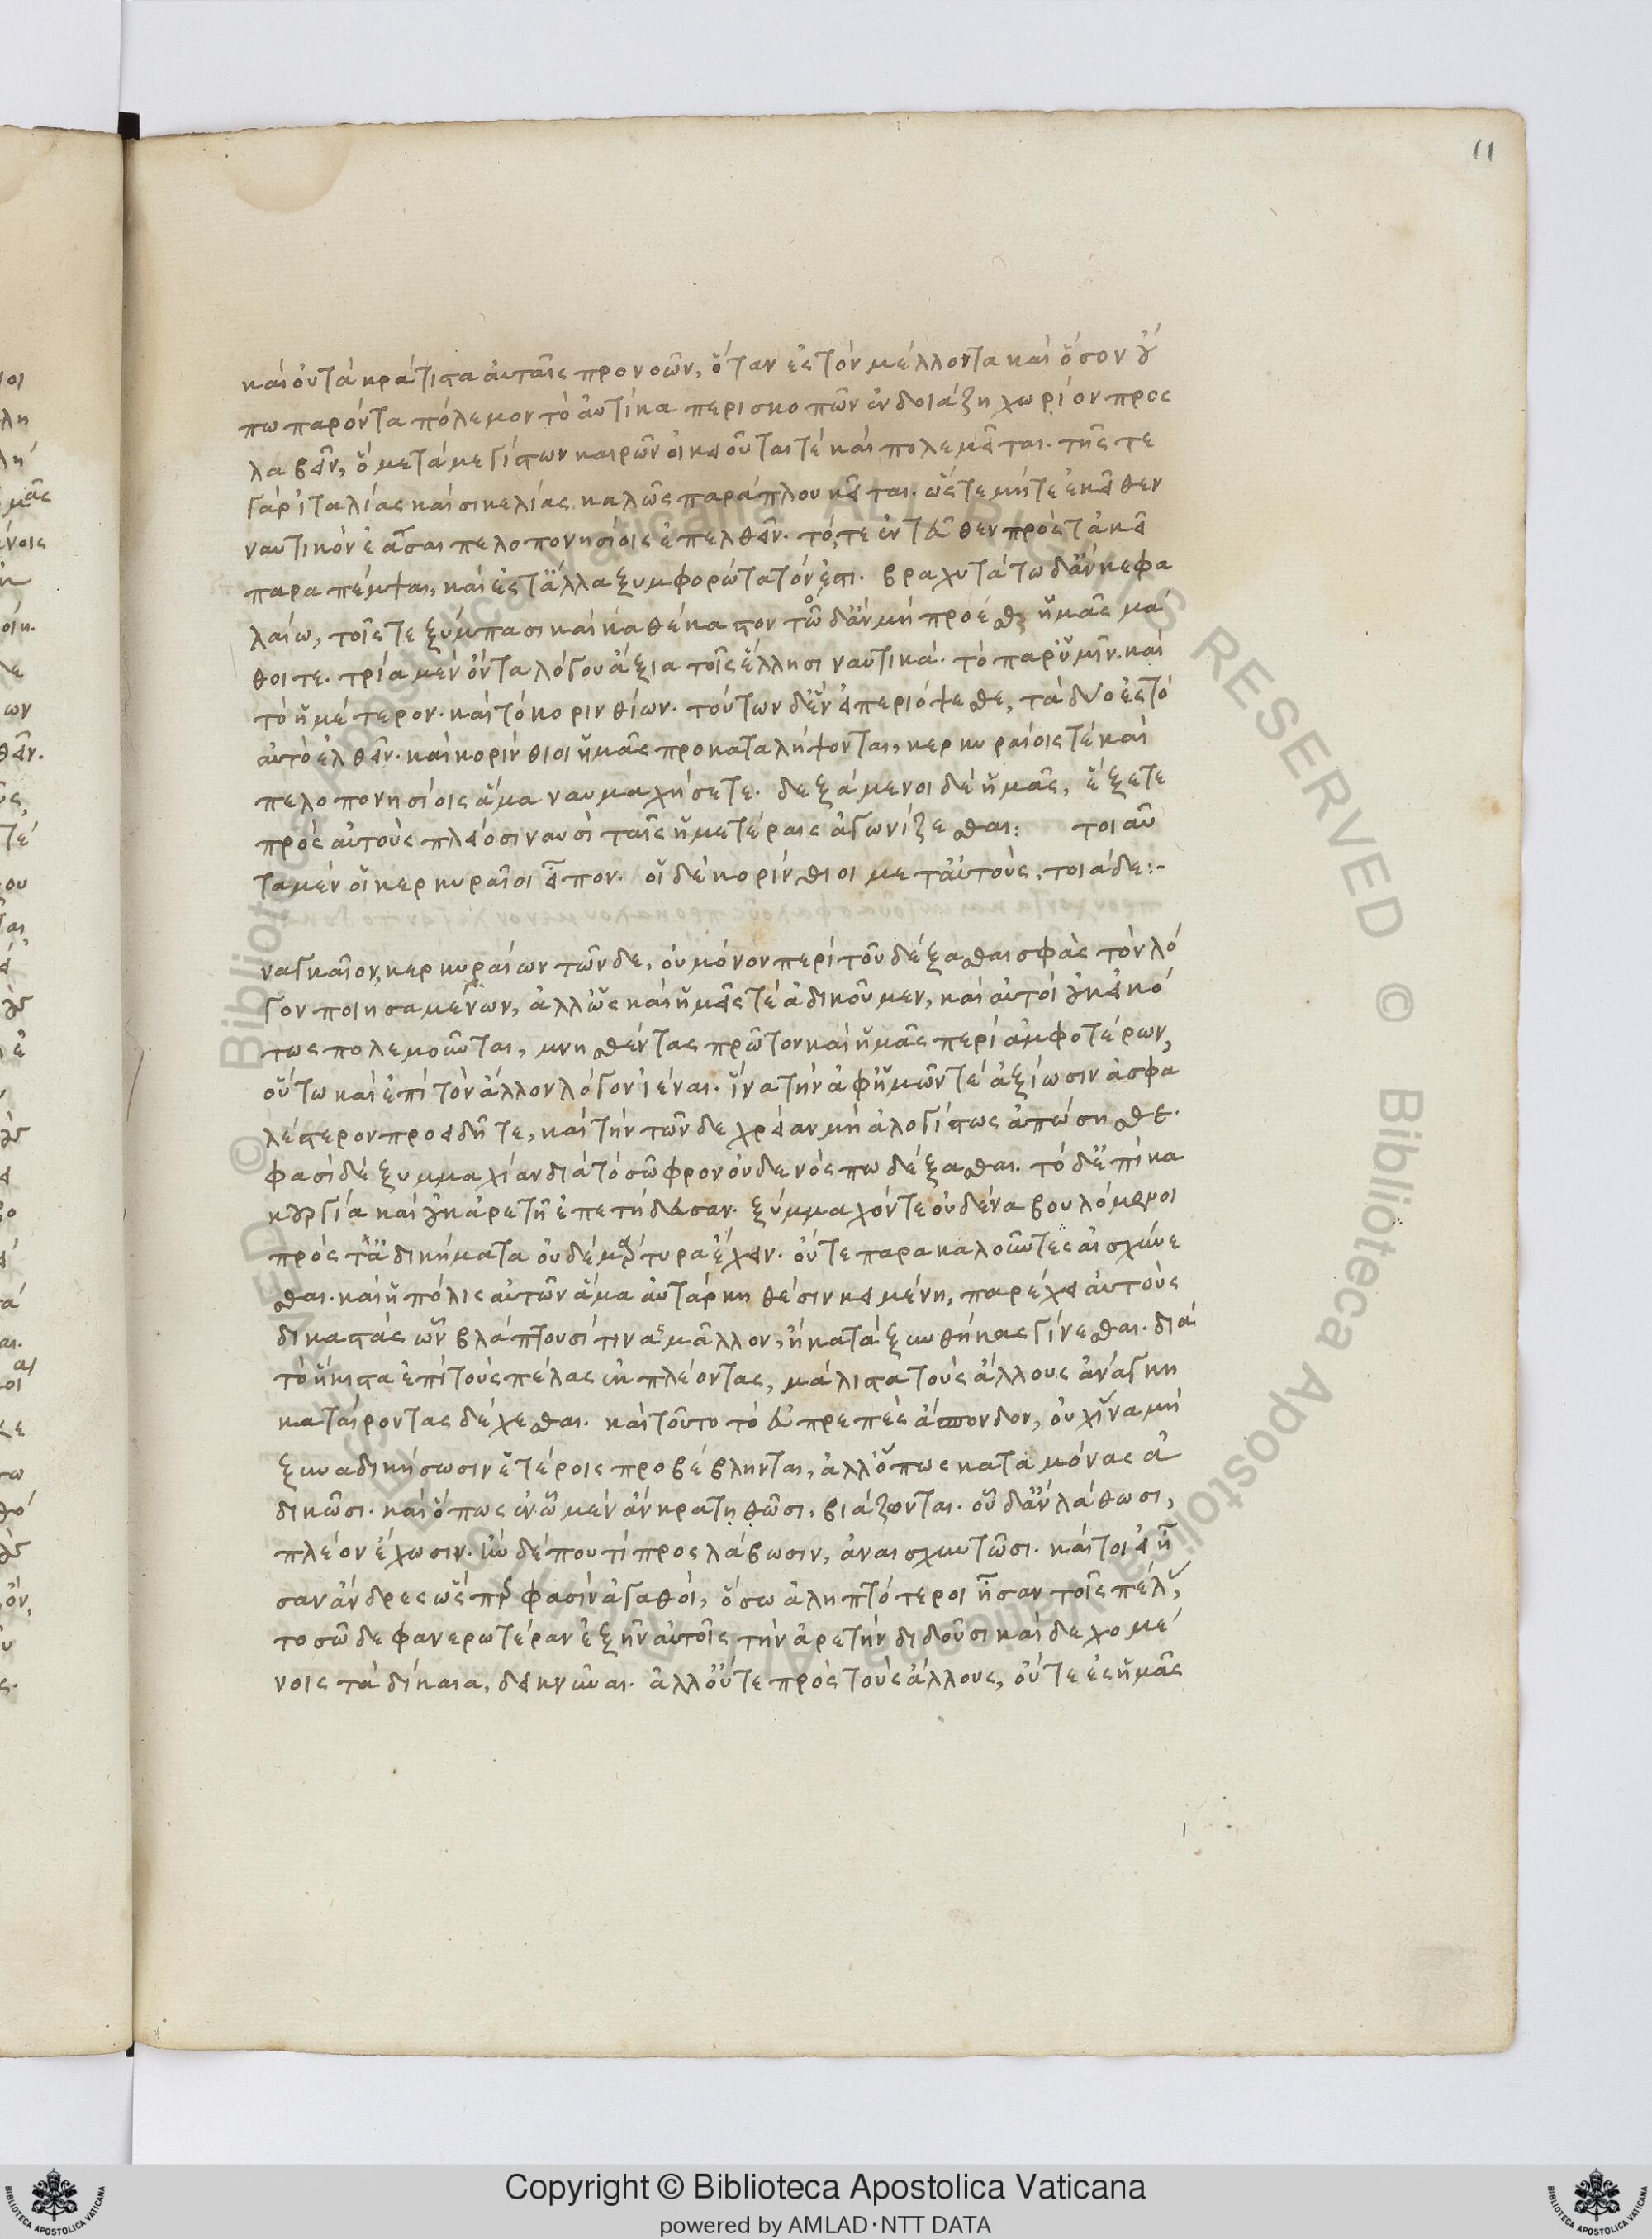 11
καὶ οὐ τὰ κράτιστα αὐταῖς προνοῶν, ὅταν ἐς τὸν μέλλοντα καὶ ὅσον οὔ
πω παρόντα πόλεμον τὸ αὐτίκα περισκοπῶν ἐνδοιάζη χωρίον προς
λαβεῖν, ὃ μετὰ μεγίστων καιρῶν οἰκειοῦται τὲ καὶ πολεμεῖται. τῆς τε
γὰρ ἰταλίας καὶ σικελίας καλῶς παράπλου κεῖται. ὥστε μήτε ἐκεῖθεν
ναυτικὸν ἐᾶσαι πελοπονησίοις ἐπελθεῖν. τό, τε ἐντεῦθεν πρὸς τἀκεῖ
παραπέμψαι, καὶ ἐς τἄλλα ξυμφορώτατόν ἐστι. βραχυτάτω δ' ἂν κεφα
λαίω, τοῖς τε ξύμπασι καὶ καθέκαστον τῶδ' ἂν μὴ προέσθαι ἡμᾶς μά
θοιτε. τρία μὲν ὄντα λόγου ἄξια τοῖς ἕλλησι ναυτικά. τὸ παρ' ὑμῖν. καὶ
τὸ ἡμέτερον. καὶ τὸ κορινθίων. τούτων δ' ἢν εἰ περιόψεσθε, τὰ δύο ἐς τὸ
αὐτὸ ἐλθεῖν. καὶ κορίνθιοι ἡμᾶς προκαταλήψονται, κερκυραίοις τὲ καὶ
πελοπονησίοις ἅμα ναυμαχήσετε. δεξάμενοι δὲ ἡμᾶς, ἕξετε
πρὸς αὐτοὺς πλείοσι ναυσὶ ταῖς ἡμετέραις ἀγωνίζεσθαι: τοιαῦ
τα μὲν οἱ κερκυραῖοι εἶπον. οἱ δὲ κορίνθιοι μετ' αὐτοὺς, τοιάδε:-
ναγκαῖον, κερκυραίων τῶνδε, οὐ μόνον περὶ τοῦ δέξασθαι σφὰς τὸν λό
γον ποιησαμένων, ἀλλ' ὡς καὶ ἡμεῖς τὲ ἀδικοῦμεν, καὶ αὐτοὶ οὐκ εἰκό
τως πολεμοῦνται, μνησθέντας πρῶτον καὶ ἡμᾶς περὶ ἀμφοτέρων,
οὕτω καὶ ἐπὶ τὸν ἄλλον λόγον ἰέναι. ἵνα τὴν ἀφ' ἡμῶν τὲ ἀξίωσιν ἀσφα
λέστερον προειδῆτε, καὶ τὴν τῶνδε χρείαν μὴ ἀλογίστως ἀπώσησθε.
φασὶ δὲ ξυμμαχίαν διὰ τὸ σῶφρον οὐδενός πω δέξασθαι. τὸ δ' ἐπὶ κα
κουργία καὶ οὐκ ἀρετῇ ἐπετήδευσαν. ξύμμαχόν τε οὐδένα βουλόμενοι
πρὸς τἀδικήματα οὐδὲ μάρτυρα ἔχειν. οὔτε παρακαλοῦντες αἰσχύνε
σθαι. καὶ ἡ πόλις αὐτῶν ἅμα αὐτάρκη θέσιν κειμένη, παρέχει αὐτοὺς
δικαστὰς ὧν βλάπτουσί τινας μᾶλλον, ἢ κατὰ ξυνθήκας γίνεσθαι. διὰ
τὸ ἥκιστα ἐπὶ τοὺς πέλας ἐκπλέοντας, μάλιστα τοὺς ἄλλους ἀνάγκη
καταίροντας δέχεσθαι. καὶ τοῦτο τὸ εὐπρεπὲς ἄσπονδον, οὐχ ἵνα μὴ
ξυναδικήσωσιν ἑτέροις προβέβληνται, ἀλλ' ὅπως κατὰ μόνας ἀ
δικῶσι. καὶ ὅπως ἐν ὧ μὲν ἂν κρατηθῶσι, βιάζονται. οὗ δ' ἂν λάθωσι,
πλέον ἔχωσιν. ἢν δέ που τί προσλάβωσιν, ἀναισχυντῶσι. καίτοι εἰ ἦ
σαν ἄνδρες ὥσπερ φασὶν ἀγαθοὶ, ὅσω ἀληπτότεροι ἦσαν τοῖς πέλας
τοσῶδε φανερωτέραν ἐξῆν αὐτοῖς τὴν ἀρετὴν διδοῦσι καὶ δεχομέ
νοις τὰ δίκαια, δεικνύναι. ἀλλ' οὔτε πρὸς τοὺς ἄλλους, οὔτε ἐς ἡμᾶς
Copyright © Biblioteca Apostolica Vaticana
powered by AMLAD·NTT DATA